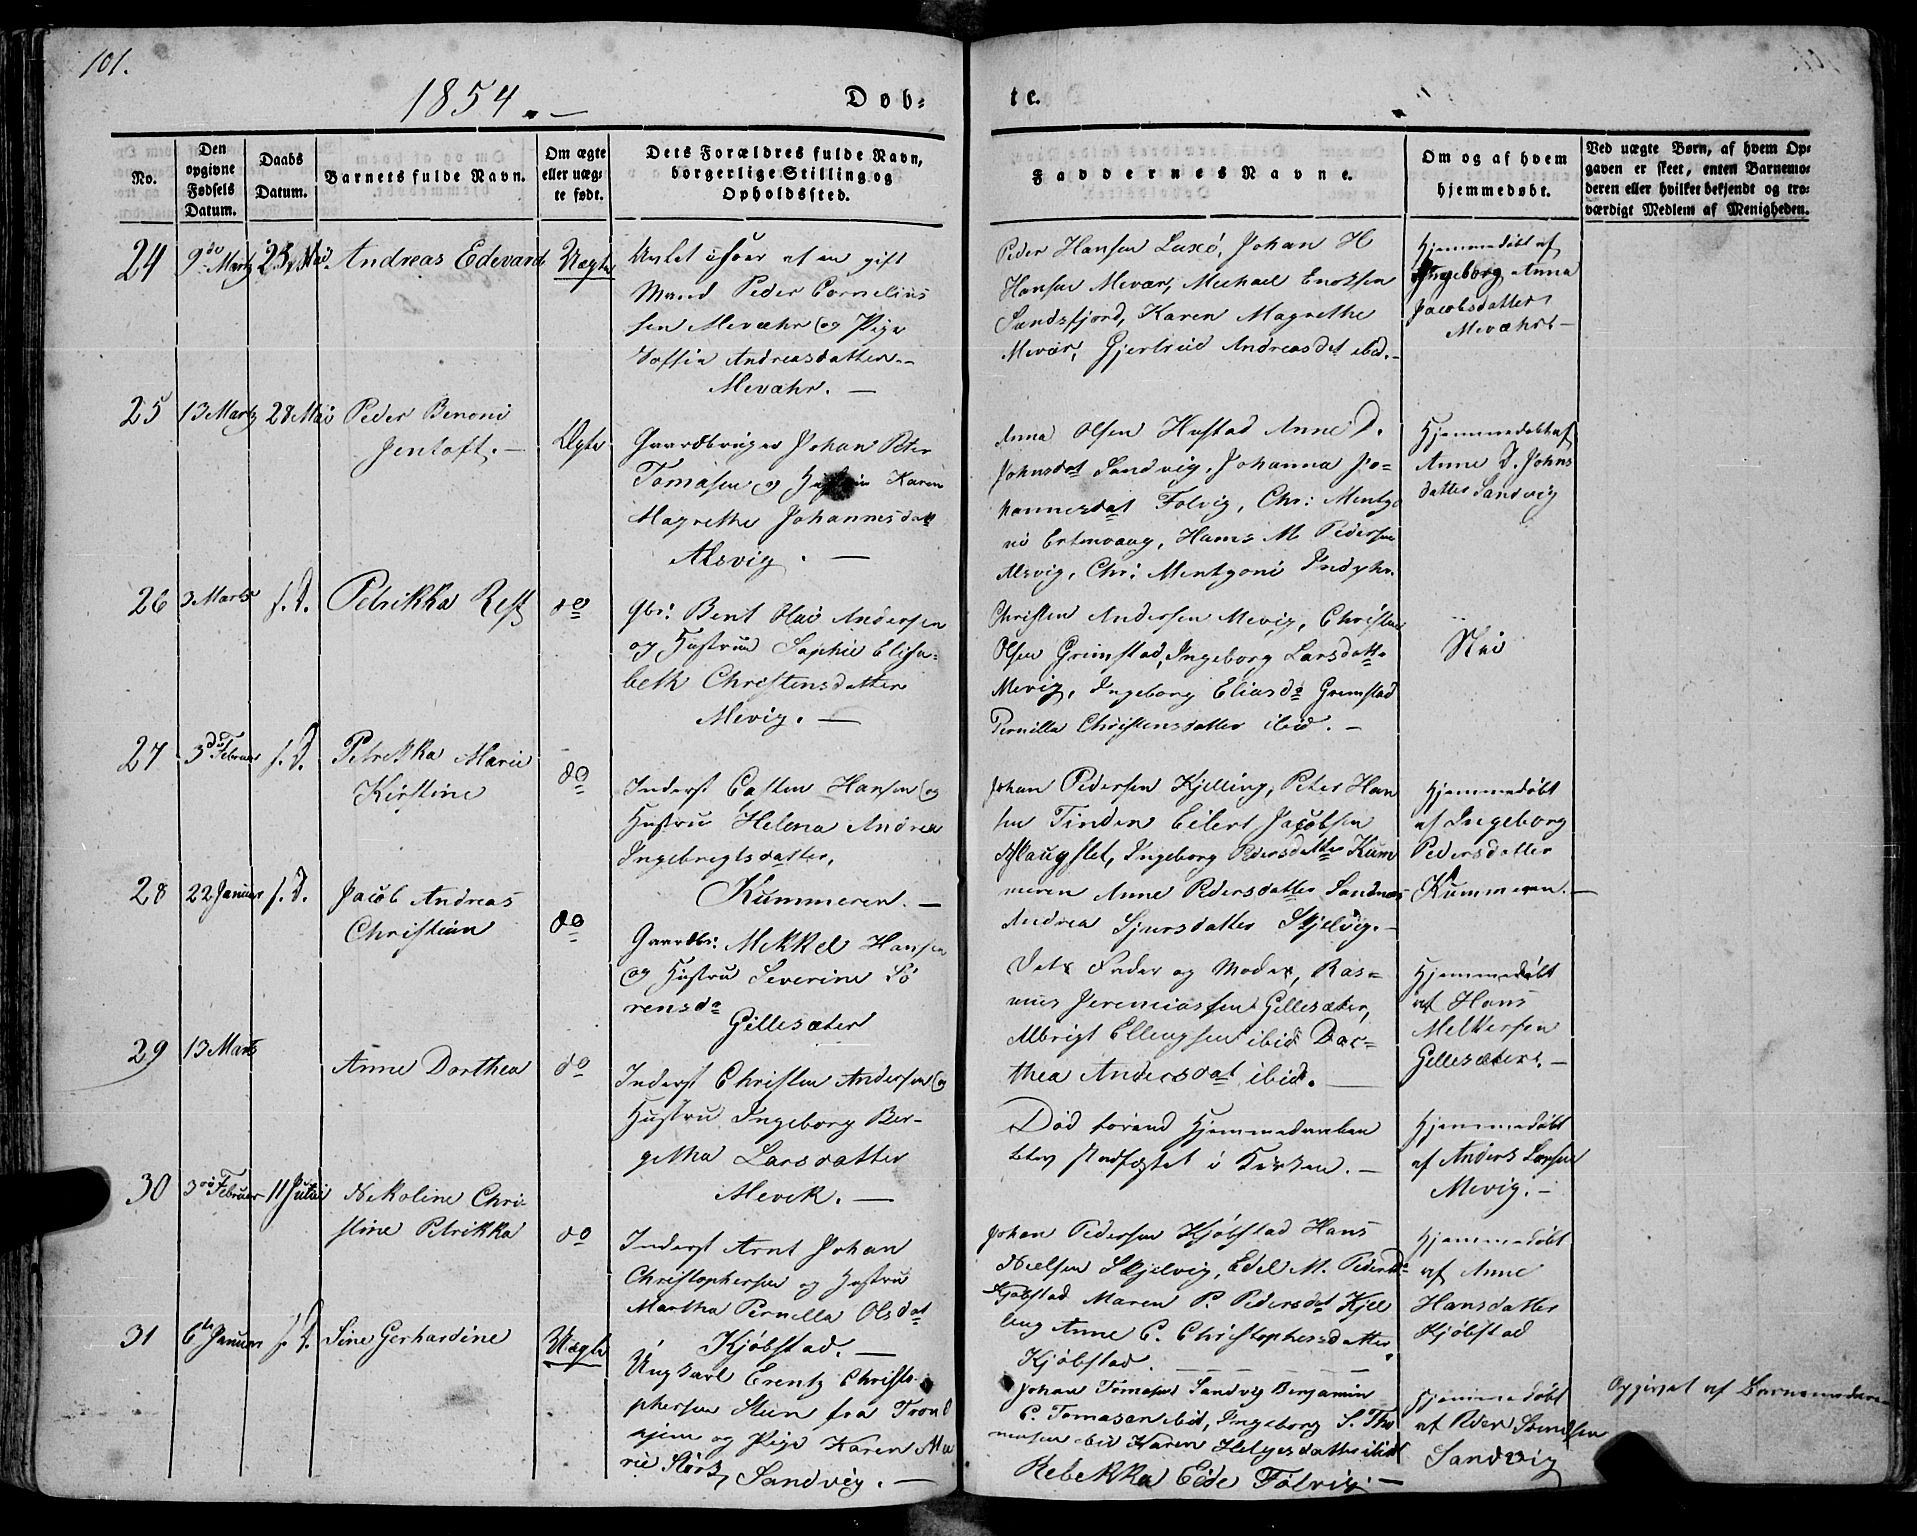 101.
1854. —
Døb-
te.
No.
Den
opgivne
Fødsels
Datum.
Daabs
Datum.
Barnets fulde Navn.
Om ægte
eller uæg-
te født.
Dets Forældres fulde Navn,
borgerlige Stilling og
Opholdssted.
Faddernes Navne.
Om og af hvem
hjemmedøbt.
Ved uægte Børn, af hvem Op-
gaven er skeet, enten Barnemo-
deren eller hvilket bekjendt og tro-
værdigt Medlem af Menigheden.
24
9de Martz
28 Mai
Andreas Edevard
Uægte
Avlet af en gift
Mand Peder Cornelius
sen Mevæhr og Pige
Andreasdatter.-
Mevæhr. —
Peder Hansen Luxö, Johan H
Hansen Mevær, Michael Enoksen
Sandsfjord, Karen Magrethe
Mevær, Gjertrud Andreasdt ibid.-
Hjemmedøbt af
Ingeborg Anna
Jacobsdatter
Mevæhr.-
25
13 Martz
28 Mai
Peder Benoni
Jentoft. —
Ægte
Gaardbruger Johan Peter
Tomasen og Karen
Magrethe Johannesdatt
Alsvig. —
Anna Olsen Hustad Anne D.
Johnsdat Sandvig, Johanna Jo-
hannesdat Folvig, Chr: Mentzo
ni Ertenvaag, Hans M. Pedersen
Alsvig, Chr: Mentzoni Indyhr.
Hjemmedøbt af
Anne D. Johns
datter Sandvig
26
3 Marts
s. D.
Petrikka
do
Gbr: Bent Olai Andersen
og Hustrue Sophie Elisa-
beth Christensdatter
Mevig. —
Christen Andersen Mevig, Christian
Olsen Grimstad, Ingeborg Larsdatter
Mevig, Ingeborg Eliasd Grimstad
Pernilla Christensdatter ibid. -
Nei
27
3de Februar
s. D.
Petrikka Marie
Kirstine
do
Inderst Casten Hansen og
Hustru Helena Andrea
Ingebregtsdatter,
Kummeren. —
Johan Pedersen Kjelling, Peter Han
sen Tinden Eilert Jacobsen
Haugslet, Ingeborg Pedersdatter Kum
meren Anne Pedersdatter Sandnæs
Andrea Sjursdatter Skjelvig.-
Hjemmedøbt
af Ingeborg
Pedersdatter
Kummeren. —
28
22 Januar
s. D.
Jacob Andreas
Christian
do
Gaardbr: Mekkel Hansen
og Hustru Severine Sö
rensd
Gillesæter
Dets Fader og Moder, Ras-
mus Jeremiassen Gillesæter,
Albrigt Ellingsen ibid Dor-
thea Andersdat ibid. —
Hjemmedøbt
af Hans
Melkersen
Gillesæter. -
29
13 Marts
Anne Dorthea
do
Inderst Christen Andersen og
Hustru Ingeborg Ber-
getha Larsdatter
Mevik. —
Død førend Hjemmedaaben
blev stadfæstet i Kirken. —
Hjemmedøbt
af Anders Larsen
Mevig. -
30
3de Februar
11 Juli
Nikoline Chri-
stine Petrikka
do
Inderst Arnt Johan
Christophersen og Hustru
Martha Pernella Olsdat
Kjöbstad. —
Johan Pedersen Kjöbstad Hans
Nielsen Skjelvig, Edel M. Pedersd
Kjöbstad Maren P. Pedersdat Kjel
ling Anne C. Christophersdatter
Kjöbstad.
Hjemmedøbt
af Anne
Hansdatter
Kjöbstad
31
6te Januar
s. D.
Sine Gerhardine
Uægte
Ungkarl Erentz Christo-
phersen Steen fra Trond
hjem og Pige Karen Ma
rie Sandvig. —
Johan Tomasen Sandvig Benjamin
C. Tomasen ibid, Ingeborg S. Tho
masen ibid Karen Helgesdatter ibid
Rebekka Eide Følvig. —
Hjemmedøbt
af Peder Svendsen
Sandvig
Opgivet af Barnemoderen